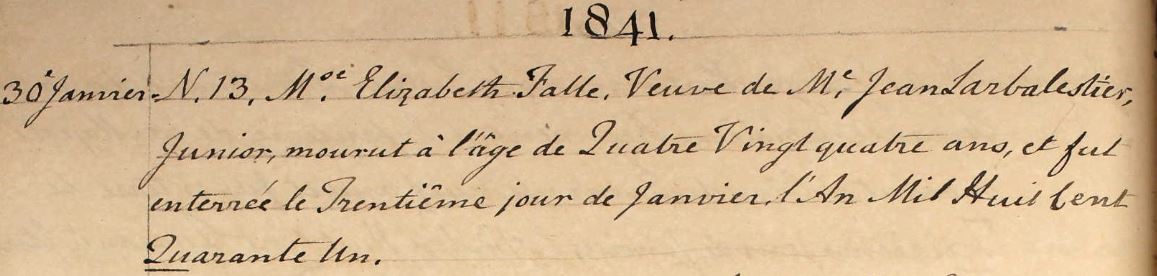 1841.
30e Janvier. N. 13. Moe. Elizabeth Falle, Veuve de Mr. Jean Larbalestier,
Junior, mourut à l'âge de Quatre Vingt quatre ans, et fut
enterrée le Trentiême jour de Janvier, l'An Mil Huit Cent
Quarante Un.